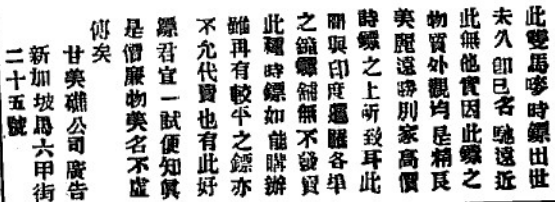 此雙馬嘜時鏢出世
未久卽已名馳遠近
此無他實因此鏢之
物質外觀均是精良
美麗遠勝別家高價
時鏢之上所致耳此
間與印度暹羅各埠
之鐘鏢舖無不發賣
此種時鏢如能購辦
雖再有較平之鏢亦
不允代賣也有此好
鏢君宜一試便知眞
是價廉物美名不虛
傳矣
甘美礁公司廣告
新加坡馬六甲街
二十五號